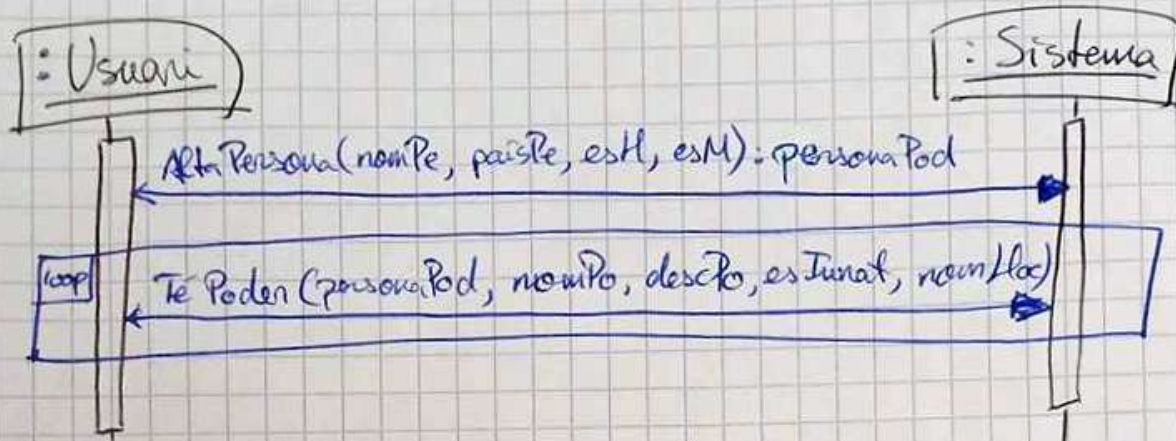 : Usuari
: Sistema
Alta Persona (nomPe, paisPe, esH, esM) : personaPod
loop
Té Poder (personaPod, nomPo, descPo, esInnat, nomLloc)